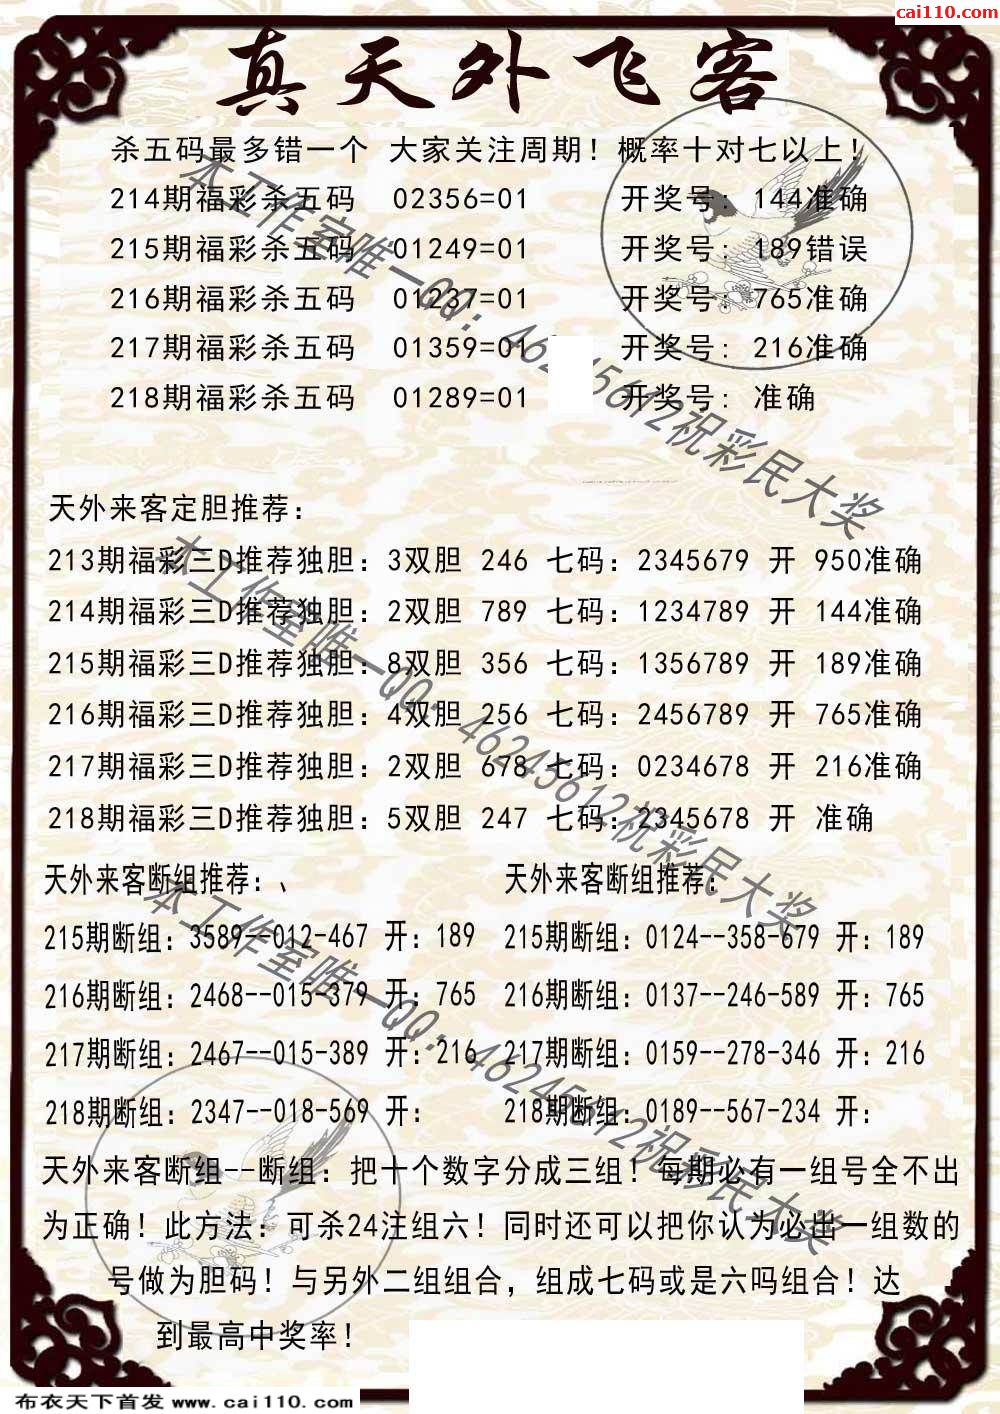 cai110.com
真天外飞客
杀五码最多错一个 大家关注周期！概率十对七以上！
214期福彩杀五码 02356=01 开奖号: 144准确
215期福彩杀五码 01249=01 开奖号: 189错误
216期福彩杀五码 01237=01 开奖号: 765准确
217期福彩杀五码 01359=01 开奖号: 216准确
218期福彩杀五码 01289=01 开奖号: 准确
本工作室唯一QQ: 46245612祝彩民大奖
天外来客定胆推荐:
213期福彩三D推荐独胆: 3双胆 246 七码: 2345679 开 950准确
214期福彩三D推荐独胆: 2双胆 789 七码: 1234789 开 144准确
215期福彩三D推荐独胆: 8双胆 356 七码: 1356789 开 189准确
216期福彩三D推荐独胆: 4双胆 256 七码: 2456789 开 765准确
217期福彩三D推荐独胆: 2双胆 678 七码: 0234678 开 216准确
218期福彩三D推荐独胆: 5双胆 247 七码: 2345678 开 准确
本工作室唯一QQ: 46245612祝彩民大奖
天外来客断组推荐:、 天外来客断组推荐:
215期断组: 3589--012-467 开: 189 215期断组: 0124--358-679 开: 189
216期断组: 2468--015-379 开: 765 216期断组: 0137--246-589 开: 765
217期断组: 2467--015-389 开: 216 217期断组: 0159--278-346 开: 216
218期断组: 2347--018-569 开: 218期断组: 0189--567-234 开:
本工作室唯一QQ: 46245612祝彩民大奖
天外来客断组--断组: 把十个数字分成三组！每期必有一组号全不出
为正确！此方法: 可杀24注组六！同时还可以把你认为必出一组数的
号做为胆码！与另外二组组合，组成七码或是六吗组合！达
到最高中奖率！
布衣天下首发 www.cai110.com